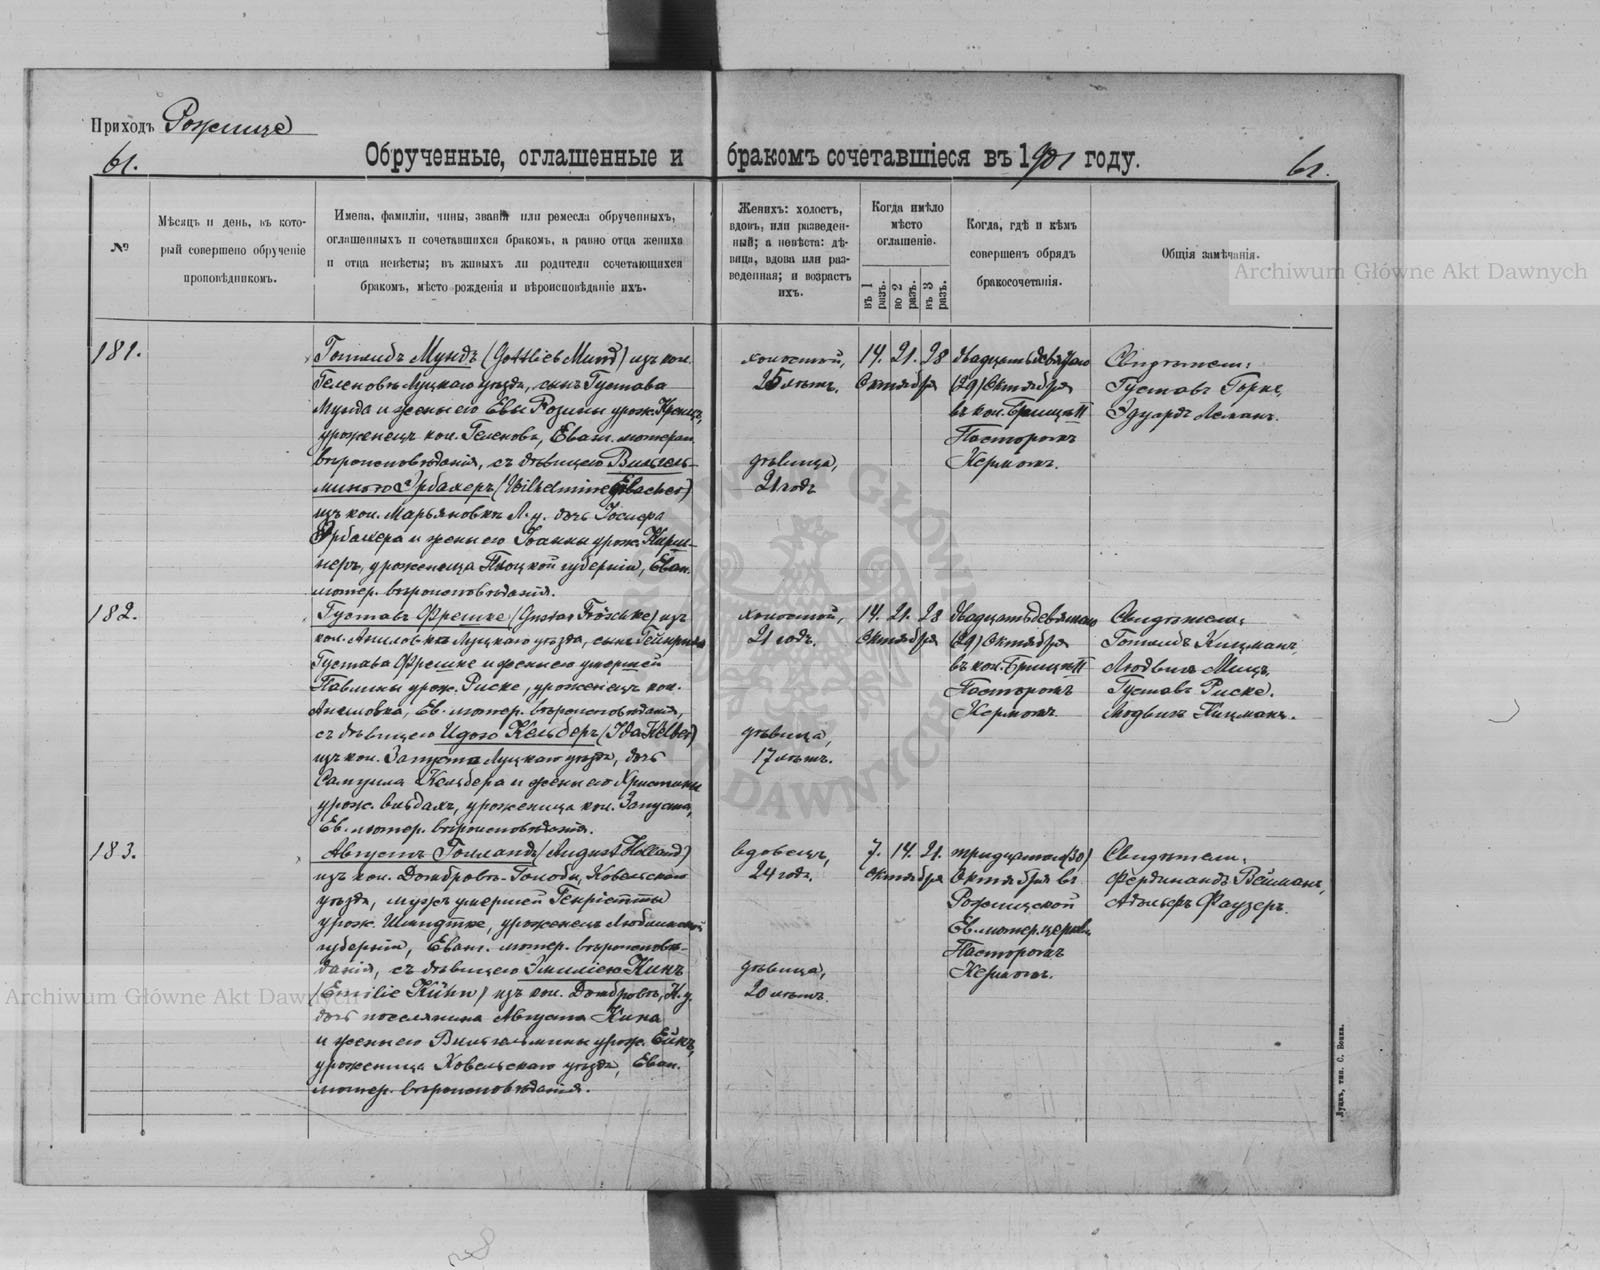 Приходъ Рожище
61.
Обрученные, оглашенные и бракомъ сочетавшіеся въ 1901 году.
61.
№
Мѣсяцъ и день, въ кото-
рый совершено обрученіе
проповѣдникомъ.
Имена, фамиліи, чины, званія или ремесла обрученныхъ,
оглашенныхъ и сочетавшихся бракомъ, а равно отца жениха
и отца невѣсты; въ живыхъ ли родители сочетающихся
бракомъ, мѣсто рожденія и вѣроисповѣданіе ихъ.
Женихъ: холостъ,
вдовъ, или разведен-
ный; а невѣста: дѣ-
вица, вдова или раз-
веденная; и возрастъ
ихъ.
Когда имѣло
мѣсто
оглашеніе.
въ 1
разъ.
во 2
разъ.
въ 3
разъ.
Когда, гдѣ и кѣмъ
совершенъ обрядъ
бракосочетанія.
Общія замѣчанія.
181.
Готлибъ Мундъ (Gottlieb Mund) изъ кол.
Геленовъ Луцкаго уѣзда, сынъ Густава
Мунда и жены его Евы Розины урож.
уроженецъ кол. Геленовъ, Еванг. лютеран.
вѣроисповѣданія, съ дѣвицею Вильгель-
миною Эрбахеръ (Wilhelmine Erbacher)
изъ кол. Марьяновкъ Л. у. дочь
Эрбахера и жены его урож. Кирш-
неръ, уроженица Плоцкой губерніи, Еван.
лютер. вѣроисповѣданія.
холостой,
25 лѣтъ.
дѣвица,
21 годъ
14. 21. 28
Октября
двадцатьдевятаго
(29) Октября
въ кол. Грищи II
Пасторомъ
Кермомъ.
Свидѣтели:
Густавъ Горке,
Эдуардъ Леманъ.
182.
Густавъ Фрешке (Gustav Fröschke) изъ
кол. Аниловкъ Луцкаго уѣзда, сынъ Гейнриха
Густава Фрешке и жены его умершей
Павлины урож. Риске, уроженецъ кол.
Аниловка, Ев. лютер. вѣроисповѣданія,
съ дѣвицею Идою Кельберъ (Ida Kelber)
изъ кол. Запуста Луцкаго уѣзда, дочь
Самуила Кельбера и жены его Христины
урож. уроженица кол. Запуста,
Ев. лютер. вѣроисповѣданія.
холостой,
21 годъ.
дѣвица,
17 лѣтъ.
14. 21. 28
Октября
двадцатьдевятаго
(29) Октября
въ кол. Грищи II
Пасторомъ
Кермомъ.
Свидѣтели:
Готлибъ Кицманъ,
Людвигъ Мицъ,
Густавъ Риске.
Людвигъ Кицманъ.
183.
Августъ Голландъ (August Holland)
изъ кол. Домбровъ-Голобы, Ковельскаго
уѣзда, мужъ умершей Генріетты
урож. Шмидтке, уроженецъ Люблинской
губерніи, Еванг. лютер. вѣроисповѣ-
данія, съ дѣвицею Эмиліею Кинъ
(Emilie Kühn) изъ кол. Домбровъ, К. у.
дочь поселянина Августа Кина
и жены его Вильгельмины урож. Ейкъ,
уроженица Ковельскаго уѣзда, Еван.
лютер. вѣроисповѣданія.
вдовецъ,
24 годъ.
дѣвица,
20 лѣтъ.
7. 14. 21.
Октября
тридцатаго (30)
Октября въ
Рожищской
Ев. лютер. церкви
Пасторомъ
Кермомъ.
Свидѣтели:
Фердинандъ Вейманъ,
Адольфъ Фаузеръ.
Луцкъ, тип. С. Бонка.
Archiwum Główne Akt Dawnych
Archiwum Główne Akt Dawnych